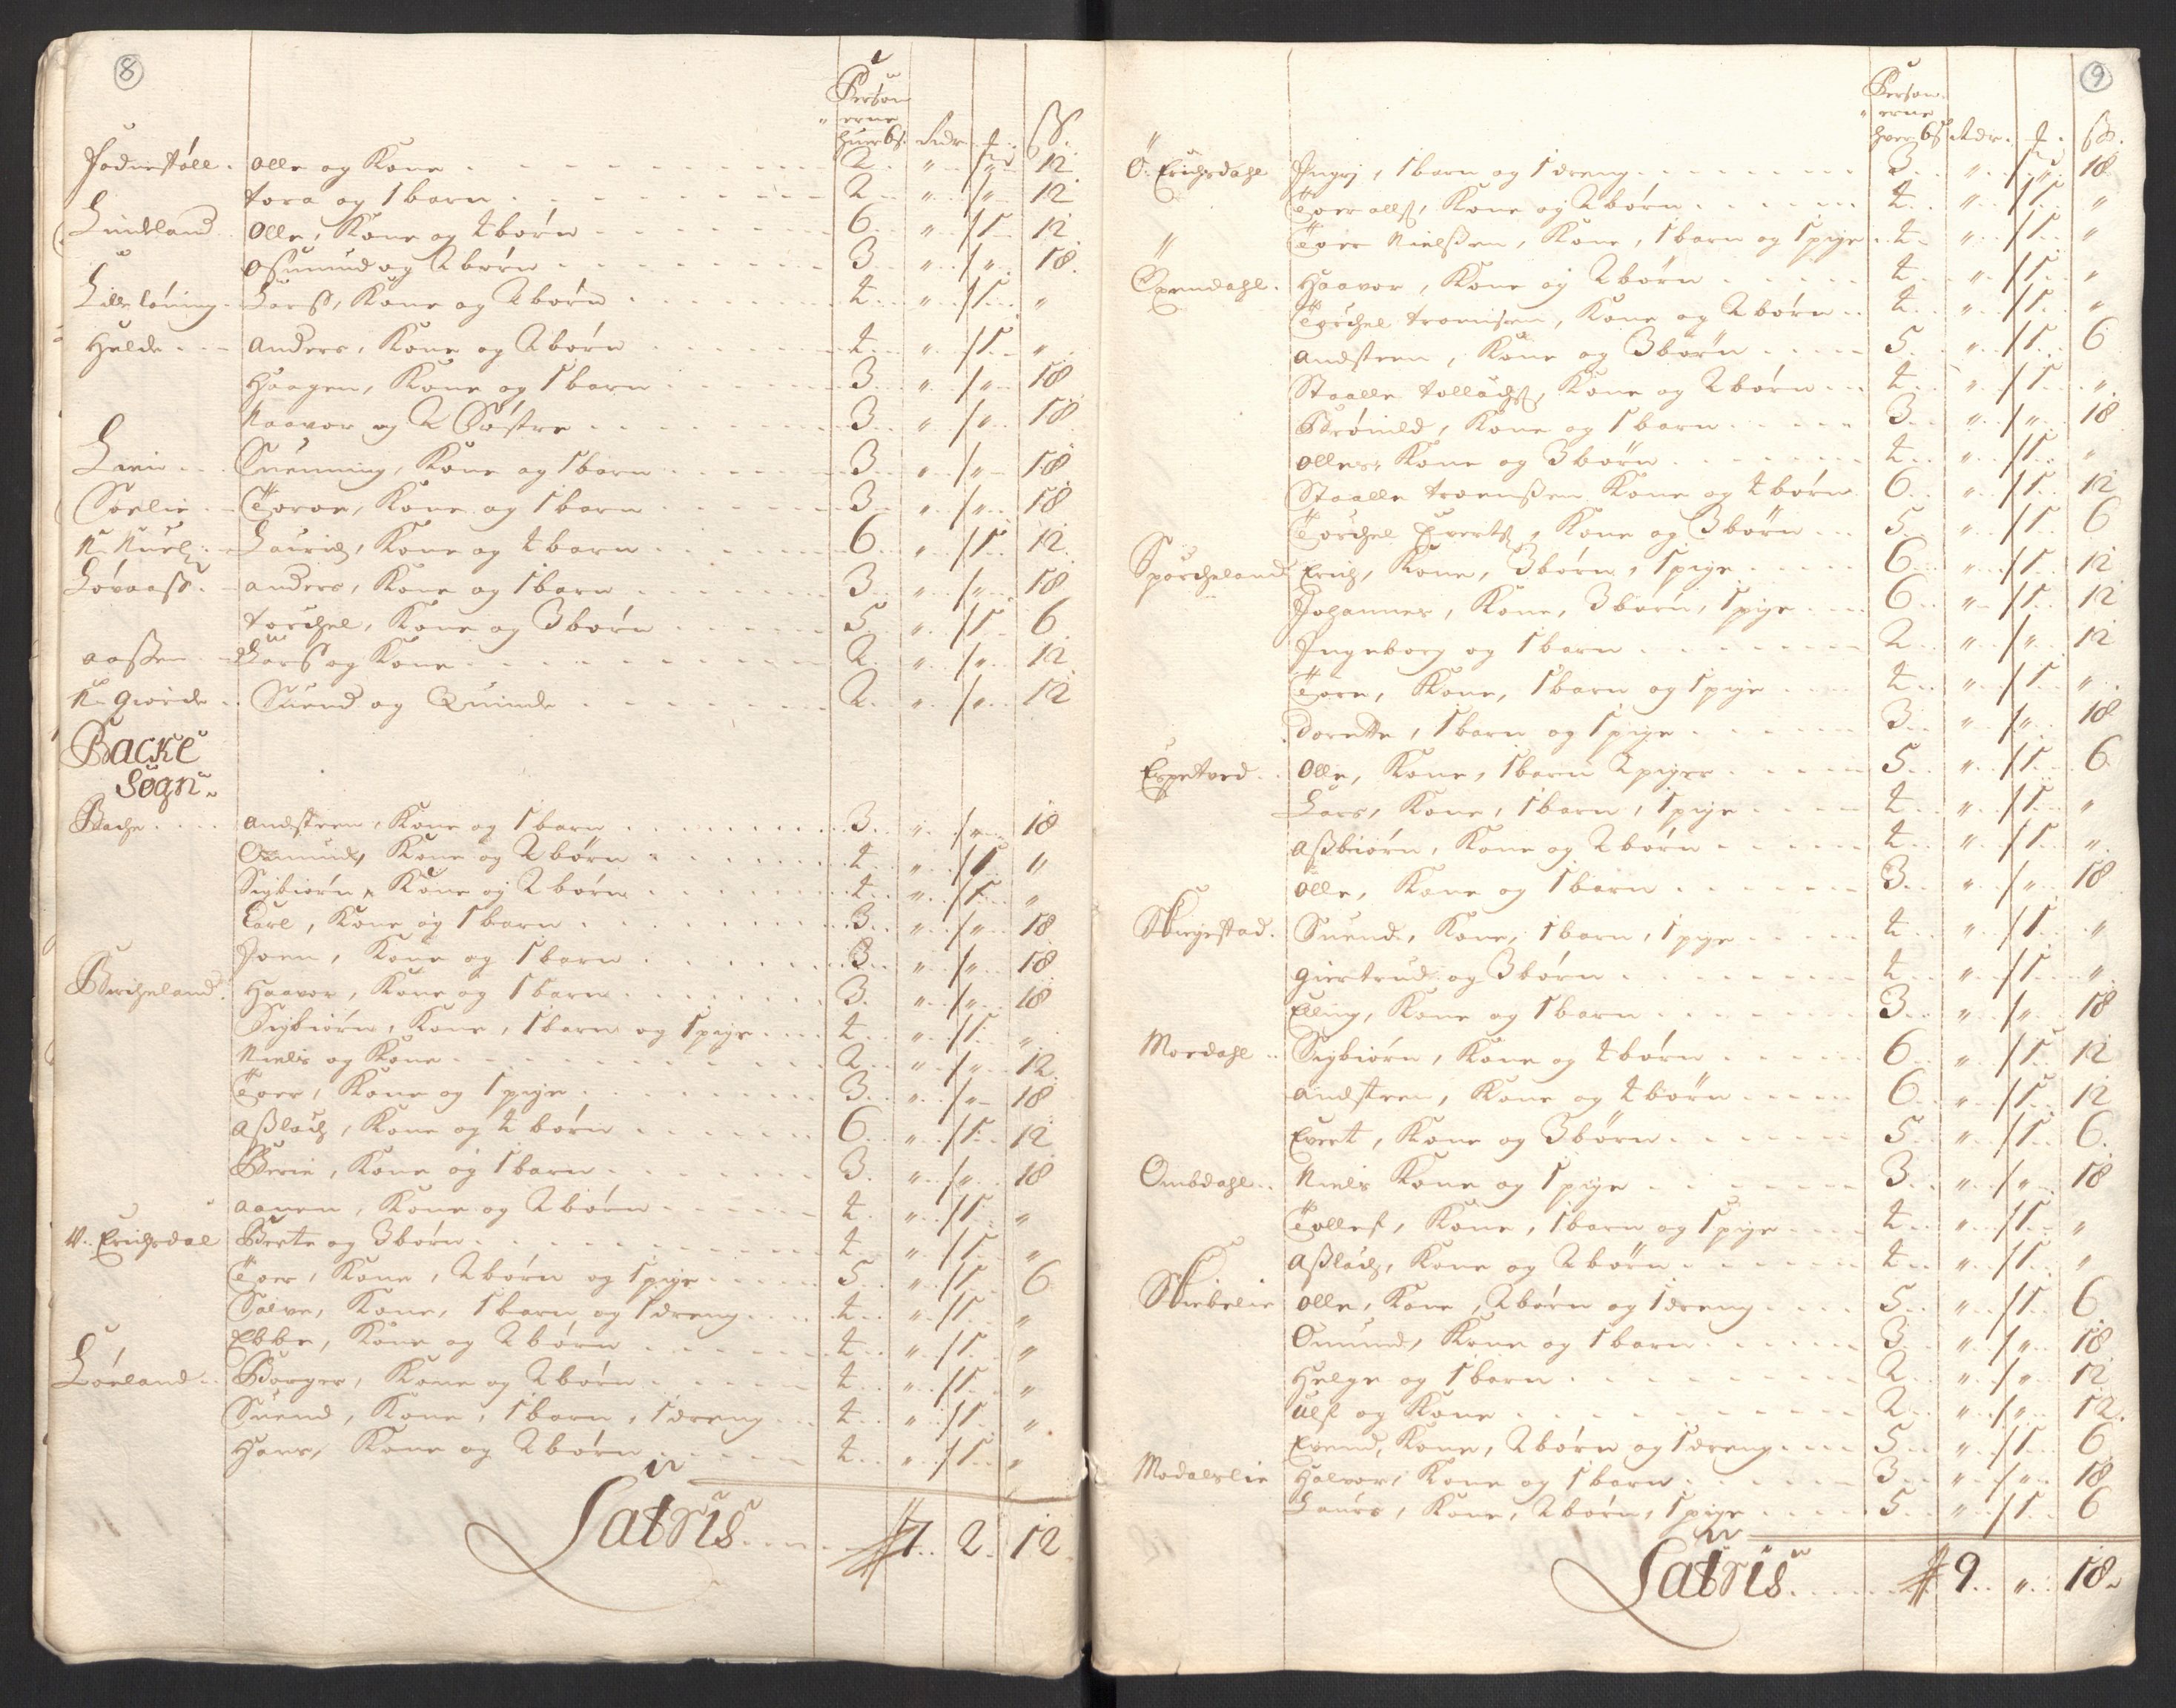 8
Person
erne
huer 6 s. Rdr. ß.
Fodnestöll. Olle og Kone 2 " " 12
Tora og 1 barn 2 " " 12
Lindland Olle, Kone og 4 börn 6 " 1 12
Osmund og 2 börn 3 " " 18
Lille löning Larss, Kone og 2 börn 4 " 1 "
Helde Anders, Kone og 2 börn 4 " 1 "
Haagen, Kone og 1 barn 3 " " 18
Naavor og 2 Söstre 3 " " 18
Suenning, Kone og 1 barn 3 " " 18
Sörlie Toroe, Kone og 1 barn 3 " " 18
Laurids, Kone og 4 barn 6 " 1 12
Lövaass Anders, Kone og 1 barn 3 " " 18
Torchel, Kone og 3 börn 5 " 1 6
Aassen Larss og Kone 2 " " 12
N. Giorde Suend og Quinde 2 " " 12
Backe
Sogn
Bache Andstren, Kone og 1 barn 3 " " 18
Osmund, Kone og 2 börn 4 " 1 "
Sigbiörn, Kone og 2 börn 4 " 1 "
Carl, Kone og 1 barn 3 " " 18
Joen, Kone og 1 barn 3 " " 18
Bircheland Haavor, Kone og 1 barn 3 " " 18
Sigbiörn, Kone, 1 barn og 1 pige 4 " 1 "
Niels og Kone 2 " " 12
Tore, Kone og 1 pige 3 " " 18
Asslach, Kone og 4 börn 6 " 1 12
Berie, Kone og 1 barn 3 " " 18
Aanen, Kone og 2 börn 4 " 1 "
V. Erichsdal Berte og 3 börn 4 " 1 "
Tore, Kone, 2 börn og 1 pige 5 " 1 6
Salve, Kone, 1 barn og 1 dreng 4 " 1 "
Ebbe, Kone og 2 börn 4 " 1 "
Löeland Borger, Kone og 2 börn 4 " 1 "
Suend, Kone, 1 barn, 1 dreng 4 " 1 "
Hans, Kone og 2 börn 4 " 1 "
Latris 7 2 12
9
Person
erne
huer 6 s Rdr. ß.
Ö. Erichsdahl Ingri, 1 barn og 1 dreng 3 " " 18
Tore olls, Kone og 2 börn 4 " 1 "
Tore Nielssen, Kone, 1 barn og 1 pige 4 " 1 "
Öxendahl Haavor, Kone og 2 börn 4 " 1 "
Torchel Tronnsen, Kone og 2 börn 4 " 1 "
Andstren, Kone og 3 börn 5 " 1 6
Staalle Tollachs, Kone og 2 börn 4 " 1 "
Brönild, Kone og 1 barn 3 " " 18
Kone og 3 börn 4 " 1 "
Staalle Kone og 4 börn 6 " 1 12
Torchel Everts, Kone og 3 börn 5 " 1 6
Spörcheland Erich, Kone, 3 börn, 1 pige 6 " 1 12
Johannes, Kone, 3 börn, 1 pige 6 " 1 12
Ingeborg og 1 barn 2 " " 12
Tore, Kone, 1 barn og 1 pige 4 " 1 "
Dorette, 1 barn og 1 pige 3 " " 18
Espetved Olle, Kone, 1 barn 2 piger 5 " 1 6
Lars, Kone, 1 barn, 1 pige 4 " 1 "
Assbiörn, Kone og 2 börn 4 " 1 "
Olle, Kone og 1 barn 3 " " 18
Skiegestad Suend, Kone, 1 barn, 1 pige 4 " 1 "
Giertrud og 3 börn 4 " 1 "
Elling, Kone og 1 barn 3 " " 18
Mordahl Sigbiörn, Kone og 4 börn 6 " 1 12
Andstren, Kone og 4 börn 6 " 1 12
Evert, Kone og 3 börn 5 " 1 6
Ombdahl Niels Kone og 1 pige 3 " " 18
Tollef, Kone, 1 barn og 1 pige 4 " 1 "
Asslach, Kone og 2 börn 4 " 1 "
Skiebelie Olle, Kone, 2 börn og 1 dreng 5 " 1 6
Omund, Kone og 1 barn 3 " " 18
Helge og 1 barn 2 " " 12
Ulf og Kone 2 " " 12
Evend, Kone, 2 börn og 1 dreng 5 " 1 6
Modalslie Halvor, Kone og 1 barn 3 " " 18
Laurs, Kone, 2 börn, 1 pige 5 " 1 6
Latris 9 " 18